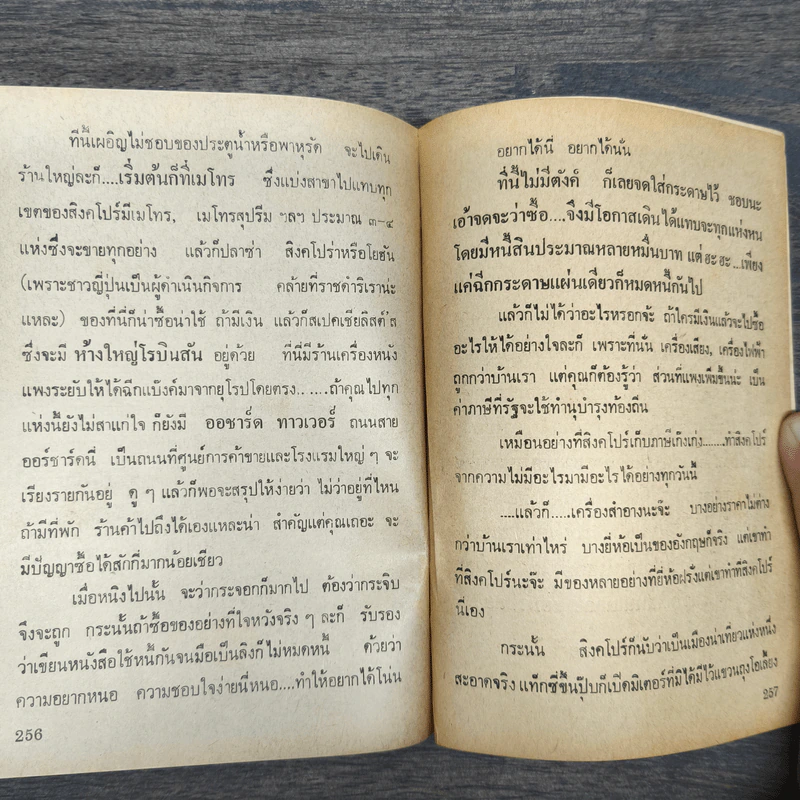 ทีนี้เผอิญไม่ชอบของประตูน้ำหรือพาหุรัด จะไปเดิน
ร้านใหญ่ละก็....เริ่มต้นก็ที่เมโทร ซึ่งแบ่งสาขาไปแทบทุก
เขตของสิงคโปร์มีเมโทร, เมโทรสุปรีม ฯลฯ ประมาณ ๓-๔
แห่งซึ่งจะขายทุกอย่าง แล้วก็ปลาซ่า สิงคโปร่าหรือโยฮัน
(เพราะชาวญี่ปุ่นเป็นผู้ดำเนินกิจการ คล้ายที่ราชดำริเราน่ะ
แหละ) ของที่นี่ก็น่าซื้อน่าใช้ ถ้ามีเงิน แล้วก็สเปคเชียลิสต์'ส
ซึ่งจะมี ห้างใหญ่โรบินสัน อยู่ด้วย ที่นี่มีร้านเครื่องหนัง
แพงระยับให้ได้ฉีกแบ๊งค์มาจากยุโรปโดยตรง.. ....ถ้าคุณไปทุก
แห่งนี้ยังไม่สาแก่ใจ ก็ยังมี ออชาร์ด ทาวเวอร์ ถนนสาย
ออร์ชาร์ดนี่ เป็นถนนที่ศูนย์การค้าขายและโรงแรมใหญ่ ๆ จะ
เรียงรายกันอยู่ ดู ๆ แล้วก็พอจะสรุปให้ง่ายว่า ไม่ว่าอยู่ที่ไหน
ถ้ามีที่พัก ร้านค้าไปถึงได้เองแหละน่า สำคัญแต่คุณเถอะ จะ
มีปัญญาซื้อได้สักกี่มากน้อยเชียว
เมื่อหนิงไปนั้น จะว่ากระจอกก็มากไป ต้องว่ากระจิบ
จึงจะถูก กระนั้นถ้าซื้อของอย่างที่ใจหวังจริง ๆ ละก็ รับรอง
ว่าเขียนหนังสือใช้หนี้กันจนมือเป็นลิงก็ไม่หมดหนี้ ด้วยว่า
ความอยากหนอ ความชอบใจง่ายนี่หนอ....ทำให้อยากได้โน่น
256
อยากได้นี่ อยากได้นั่น
ที่นี้ไม่มีตังค์ ก็เลยจดใส่กระดาษไว้ ชอบนะ
เอ้าจดจะว่าซื้อ....จึงมีโอกาสเดินได้แทบจะทุกแห่งหน
โดยมีหนี้สินประมาณหลายหมื่นบาท แต่ ฮะ ฮะ ...เพียง
แค่ฉีกกระดาษแผ่นเดียวก็หมดหนี้กันไป
แล้วก็ไม่ได้ว่าอะไรหรอกจ้ะ ถ้าใครมีเงินแล้วจะไปซื้อ
อะไรให้ได้อย่างใจละก็ เพราะที่นั่น เครื่องเสียง, เครื่องไฟฟ้า
ถูกกว่าบ้านเรา แต่คุณก็ต้องรู้ว่า ส่วนที่แพงเพิ่มขึ้นน่ะ เป็น
ค่าภาษีที่รัฐจะใช้ทำนุบำรุงท้องถิ่น
เหมือนอย่างที่สิงคโปร์เก็บภาษีเก๊งเก่ง.......ทำสิงคโปร์
จากความไม่มีอะไรมามีอะไรได้อย่างทุกวันนี้
....แล้วก็.....เครื่องสำอางนะจ๊ะ บางอย่างราคาไม่ต่าง
กว่าบ้านเราเท่าไหร่ บางยี่ห้อเป็นของอังกฤษก็จริง แต่เขาทำ
ที่สิงคโปร์นะจ๊ะ มีของหลายอย่างที่ยี่ห้อฝรั่งแต่เขาทำที่สิงคโปร์
นี่เอง
กระนั้น สิงคโปร์ก็นับว่าเป็นเมืองน่าเที่ยวแห่งหนึ่ง
สะอาดจริง แท็กซี่ขึ้นปุ๊บก็เปิดมิเตอร์ที่มิได้มีไว้แขวนถุงโอเลี้ยง
257